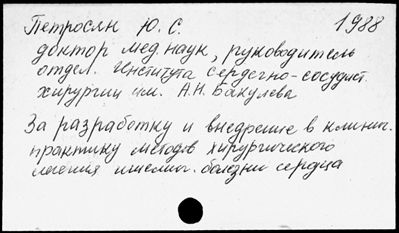 Петросян Ю. С. 1988
доктор мед. наук, руководитель
отдел. Института сердечно-сосудист.
хирургии им. А.Н. Бакулева
За разработку и внедрение в клинич.
практику методов хирургического
лечения ишемич. болезни сердца